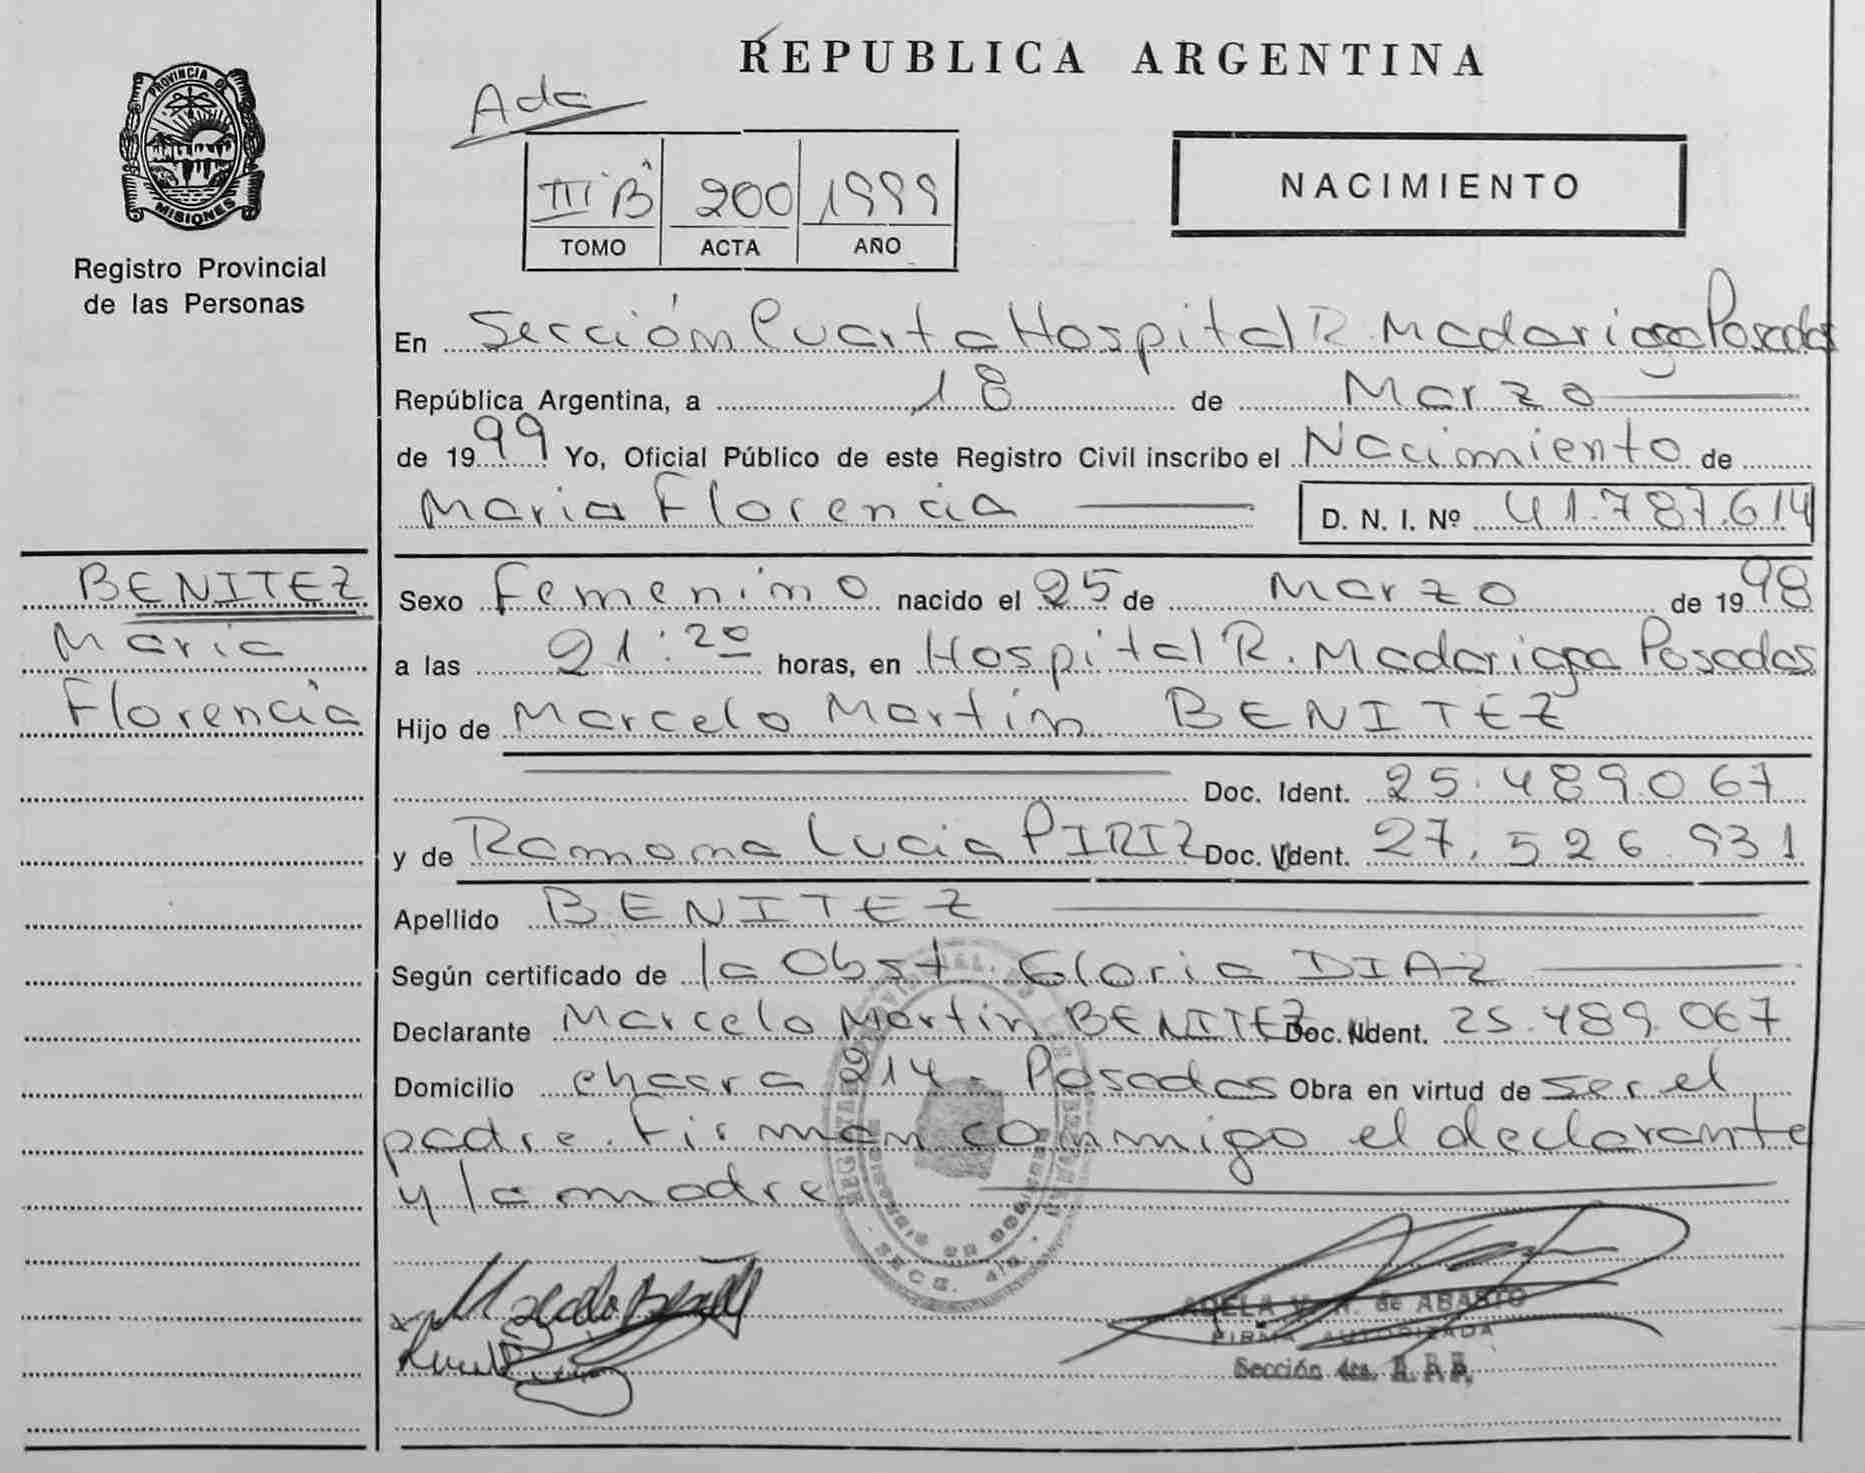 REPUBLICA ARGENTINA
PROVINCIA DE
MISIONES
Registro Provincial
de las Personas
III "B" 200 1999
TOMO ACTA AÑO
NACIMIENTO
En Sección Cuarta Hospital R. Madariaga Posadas
República Argentina, a 18 de Marzo
de 1999 Yo, Oficial Público de este Registro Civil inscribo el Nacimiento de
Maria Florencia D. N. I. Nº 41.787.614
BENITEZ
Maria
Florencia
Sexo Femenino nacido el 25 de Marzo de 1998
a las 21:20 horas, en Hospital R. Madariaga Posadas
Hijo de Marcelo Martín BENITEZ
Doc. Ident. 25.489.067
y de Ramona Lucia PIRIZ Doc. Ident. 27.526.931
Apellido BENITEZ
Según certificado de la Obst Gloria DIAZ
Declarante Marcelo Martín BENITEZ Doc. Ident. 25.489.067
Domicilio chacra 214 - Posadas Obra en virtud de ser el
padre. Firman conmigo el declarante
y la madre
ADELA V. N. de ABASTO
FIRMA AUTORIZADA
Sección 4ta.